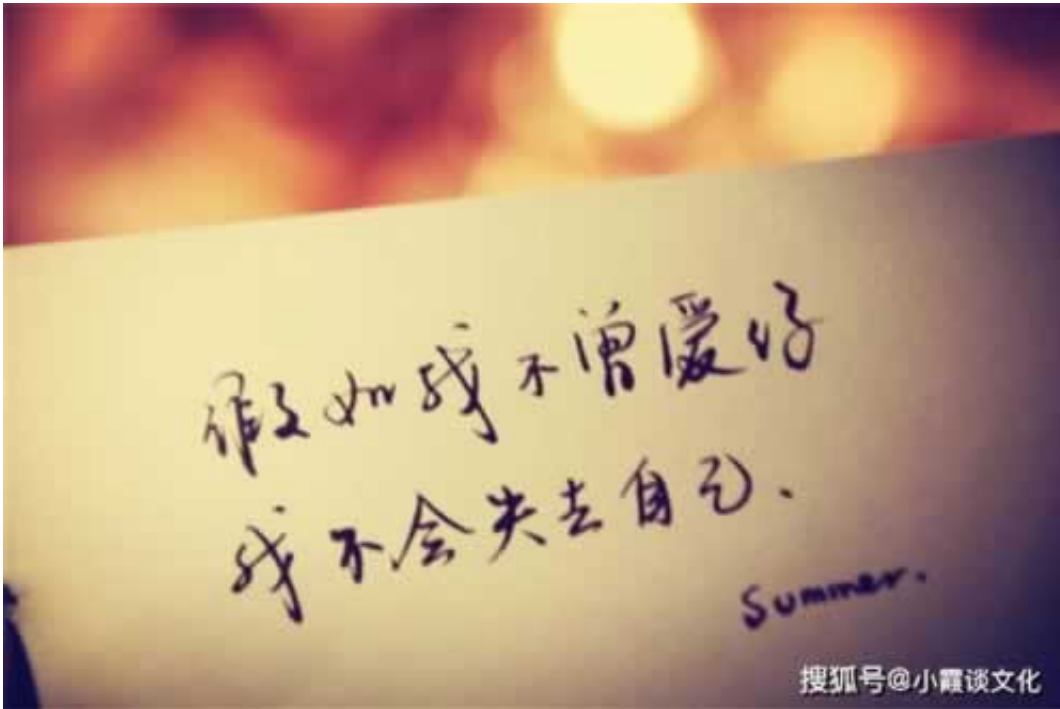 假如我不曾爱好
我不会失去自己.
Summer.
搜狐号@小霞谈文化